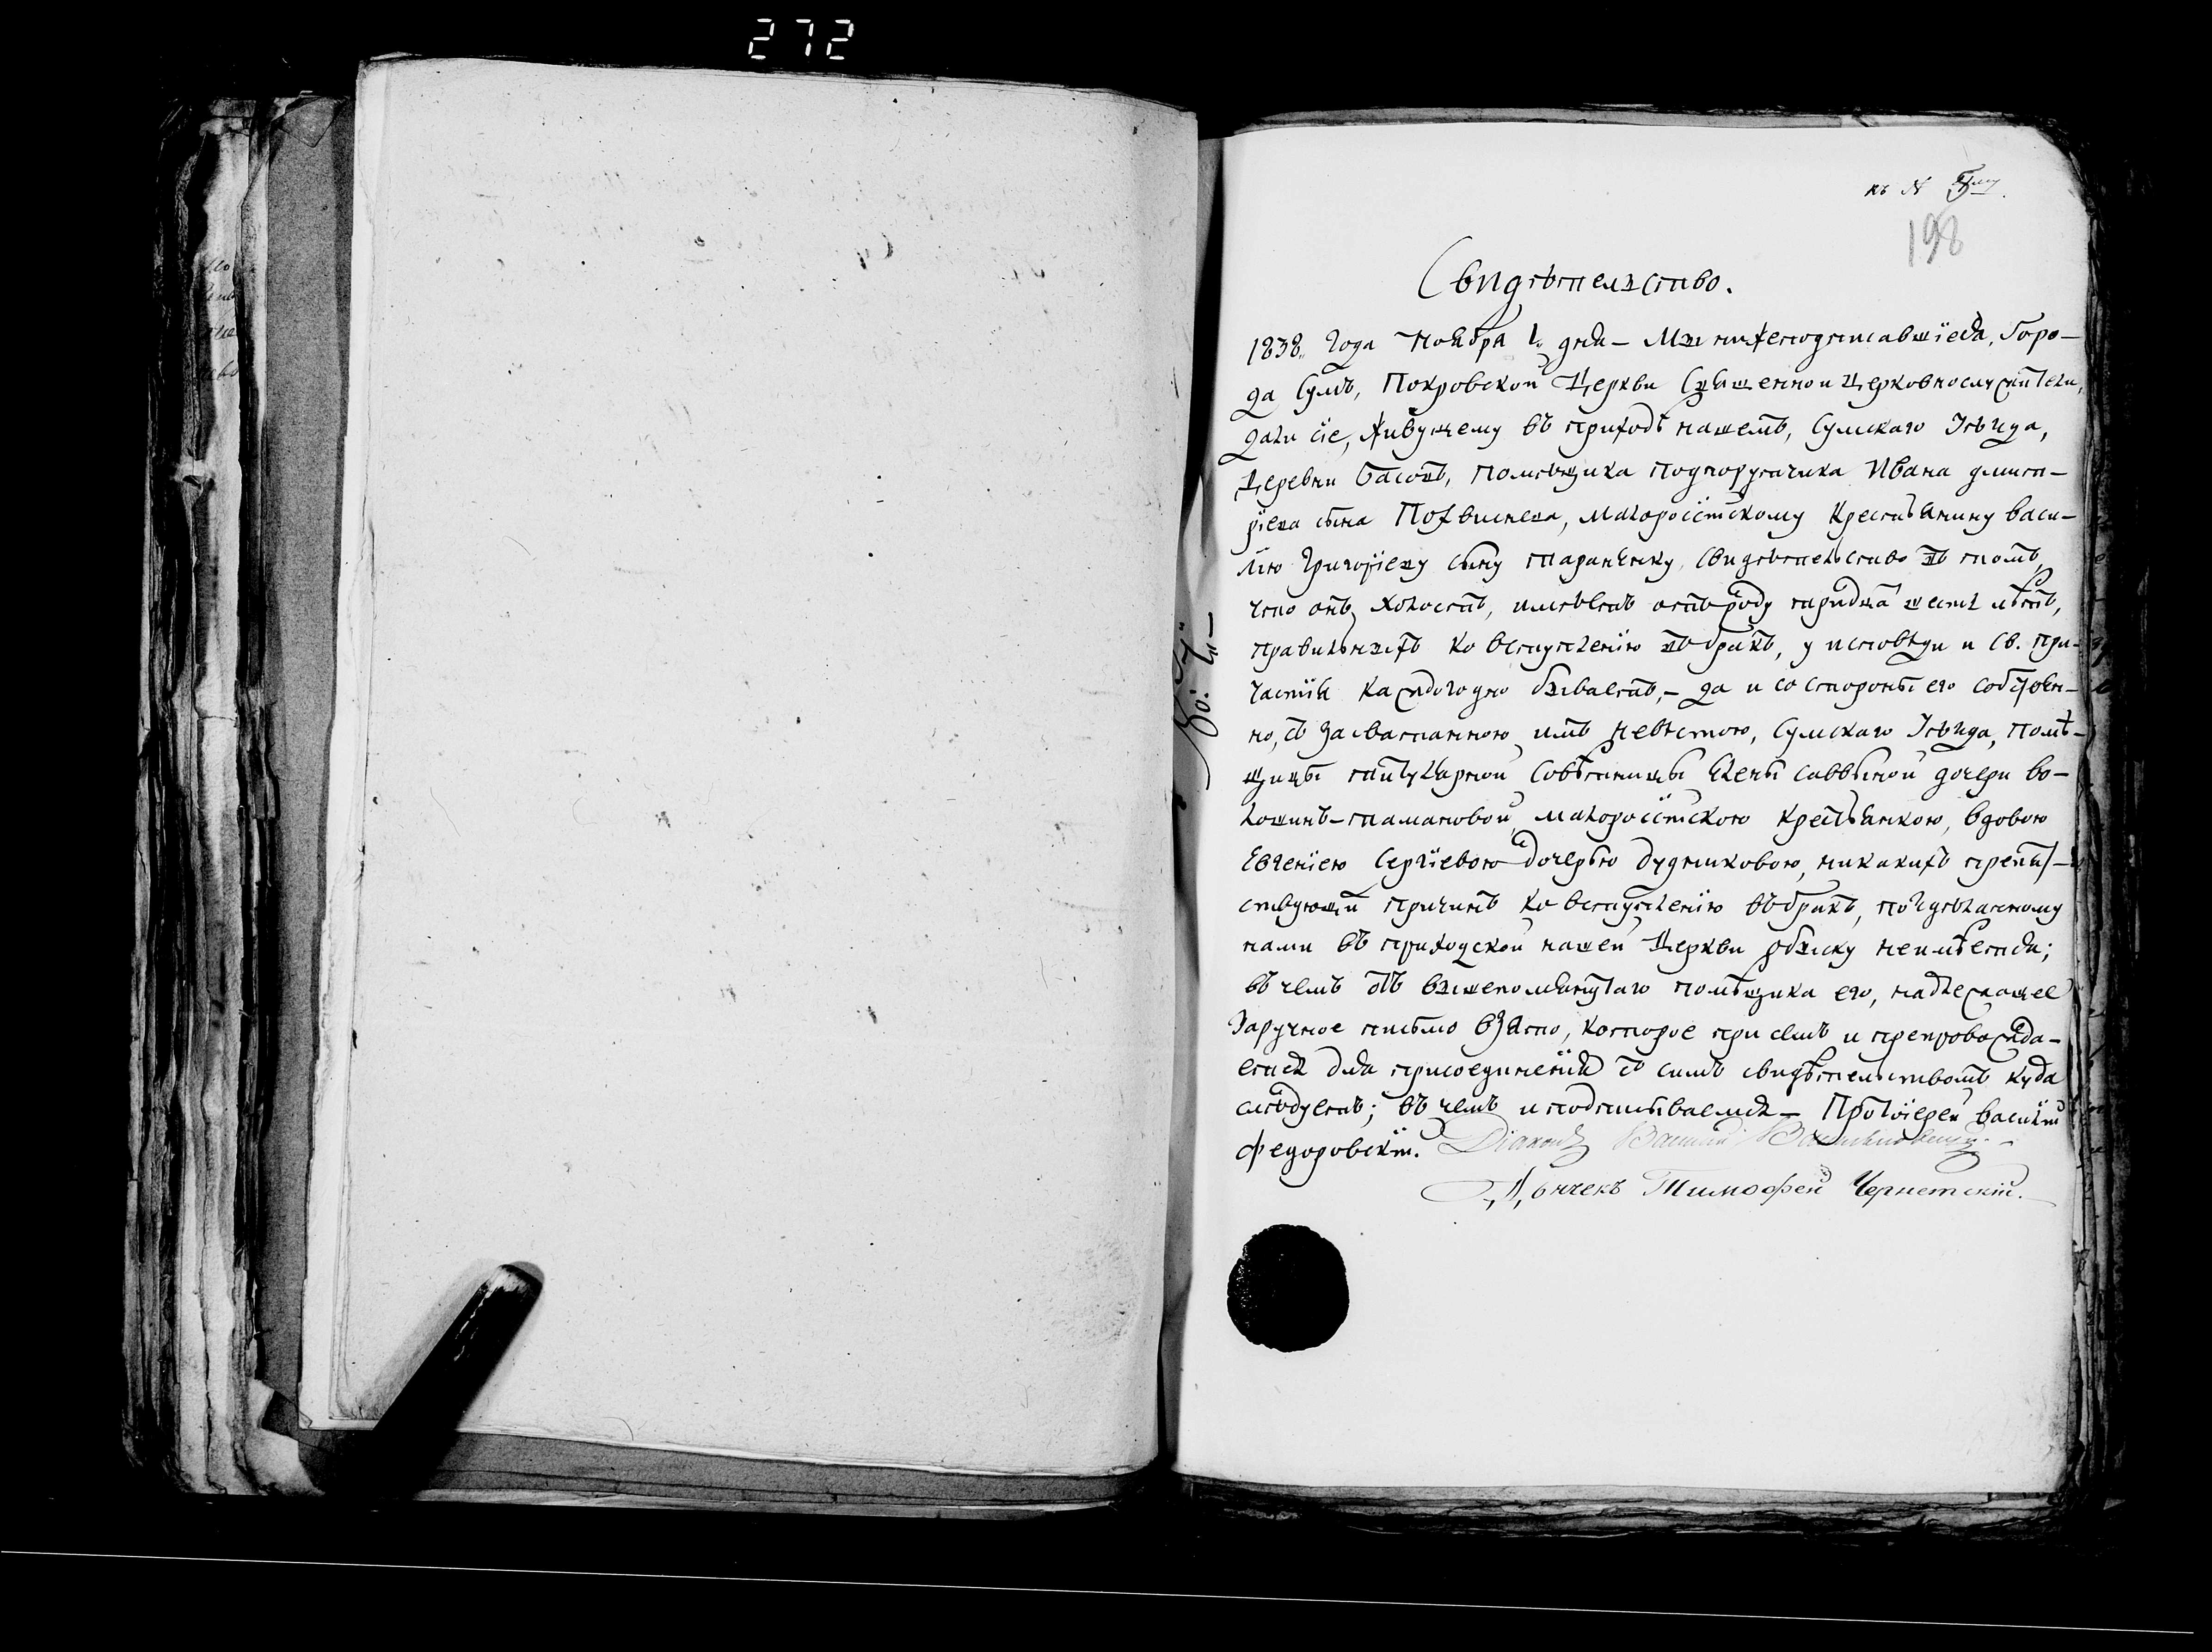 272
къ № 8му.
198
Свидѣтельство.
1838. Года Ноября 1. дня – Мы нижеподписавшіеся, Горо–
да Сумъ, Покровской Церкви Священно и Церковнослужители,
дали сіе, живущему въ приходѣ нашемъ, Сумскаго Уѣзда,
Деревни Басовъ, помѣщика подпоручика Ивана Дмит–
ріева сына Похвиснева, малороссійскому крестьянину Васи–
лію Григоріеву сыну Тараненку, свидѣтельство въ томъ,
что онъ холостъ, имѣетъ отъ роду тридцать шесть лѣтъ,
ко вступленію въ бракъ, у исповѣди и Св. При–
частія каждогодно бываетъ, – да и со стороны его собствен–
но, съ засватанною имъ невѣстою, Сумскаго Уѣзда, помѣ–
щицы титулярной совѣтницы Елены Саввиной дочери Во–
лошинъ-Ламановой, малороссійскою крестьянкою, вдовою
Евгеніею Сергіевою дочерью Дудниковою, никакихъ препят–
ствующий причинъ ко вступленію въ бракъ, по здѣланному
нами въ приходской нашей Церкви обыску неимѣется;
въ чемъ отъ вышепомянутаго помѣщика его, надлежащее
заручное письмо взято, которое при семъ и препровожда–
ется для присоединенія съ симъ свидѣтельствомъ куда
слѣдуетъ; въ чемъ и подписываемся – Протоіерей Василій
Федоровскій. Діаконъ Василій
Дьячекъ Тимофей Чернетскій.